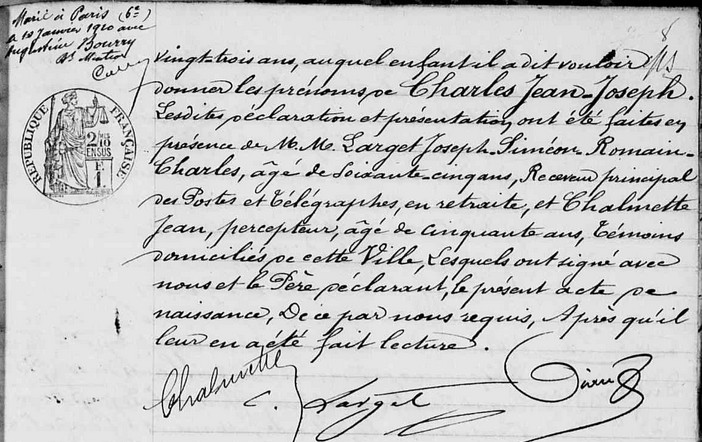 Marié à Paris (6e)
le 18 Janvier 1910 avec
Augustine Bourry
Dt Mention
8
RÉPUBLIQUE FRANÇAISE
vingt-trois ans, auquel enfant il a dit vouloir
donner les prénoms de Charles Jean-Joseph.
Lesdites déclaration et présentation, ont été faites en
présence de M.M. Larget Joseph-Siméon-Romain-
Charles, âgé de soixante-cinq ans, Receveur principal
des Postes et Télégraphes, en retraite, et Chalmette
Jean, percepteur, âgé de cinquante ans, Témoins
domiciliés de cette Ville, Lesquels ont signé avec
nous et le Père déclarant, le présent acte de
naissance, De ce par nous requis, Après qu'il
leur en a été fait lecture.
Chalmette
C. Larget